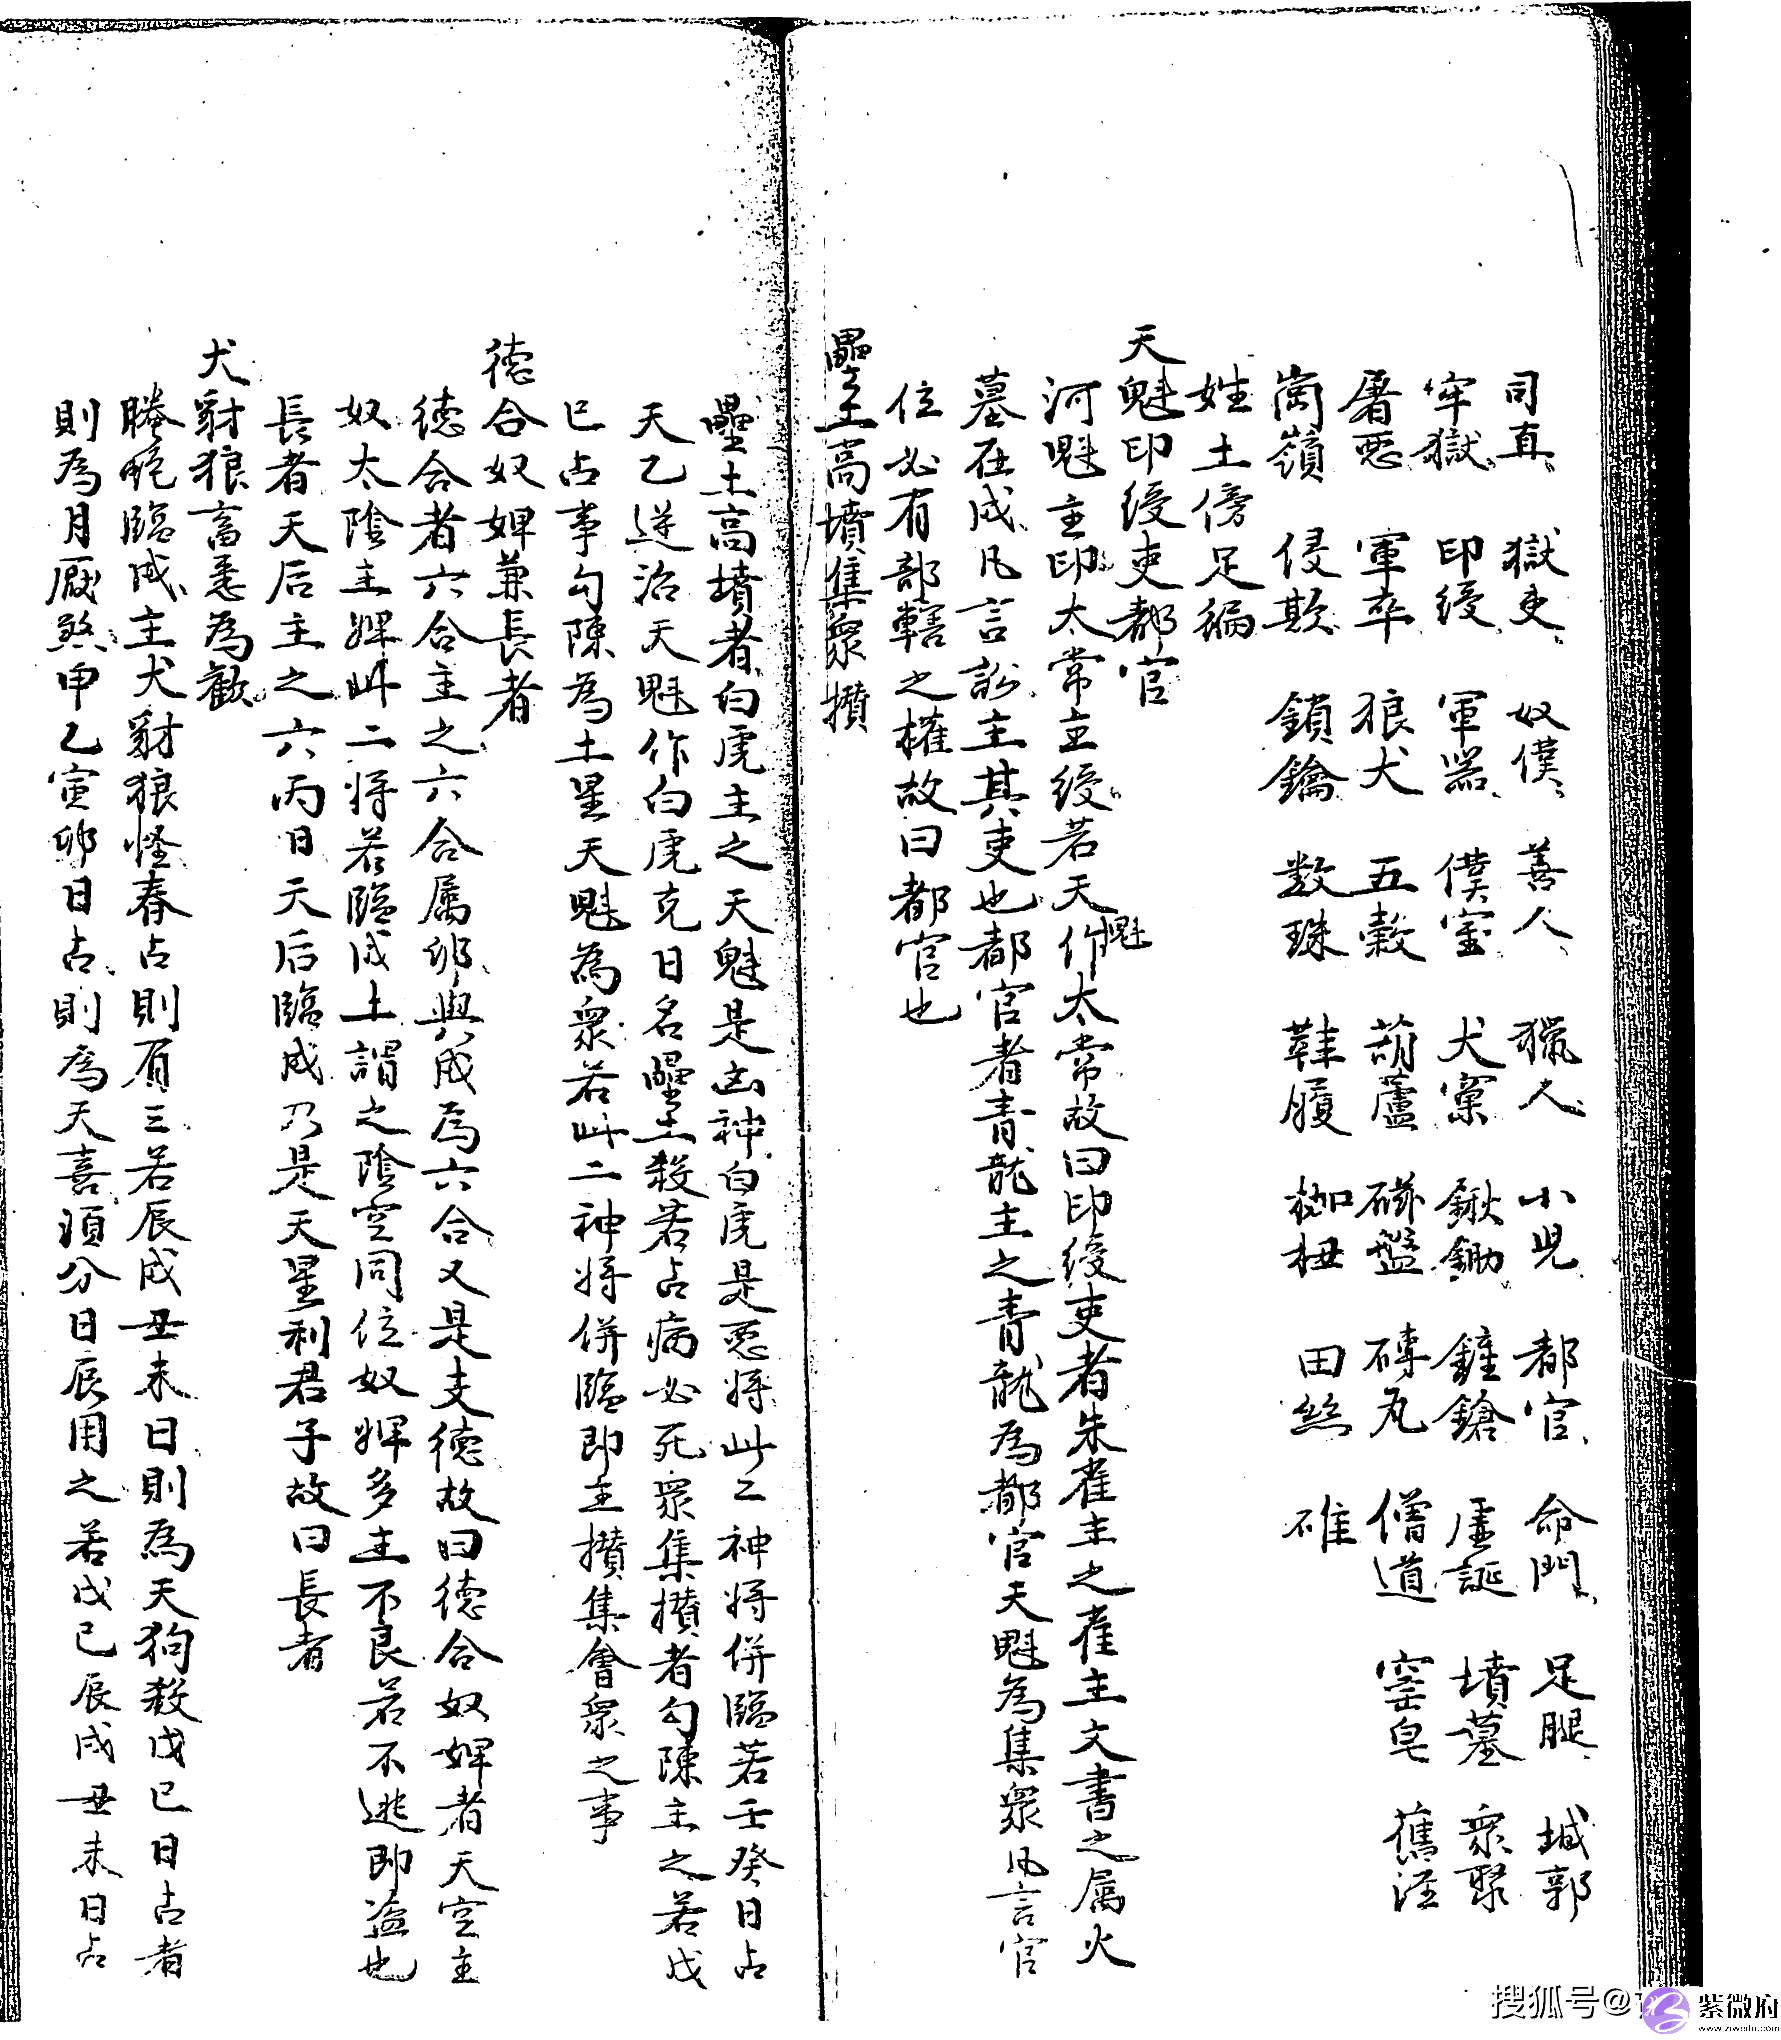 司直 獄吏 奴僕 善人 獵人 小児 都官 命門 足腿 城郭
牢獄 印綬 軍器 僕室 犬窠 鍬鋤 鐘鎗 虛誕 墳墓 衆聚
屠惡 軍卒 狼犬 五穀 葫蘆 磁盤 磚瓦 僧道 窑皂
崗嶺 侵欺 鎖鑰 数珠 鞋履 枷杻 田絲 碓
姓土傍足編
天魁印綬吏都官
河魁主印太常主綬若天魁作太常故曰印綬吏者朱雀主之雀主文書之属火
墓在戌凡言訟主其吏也都官者青龍主之青龍為都官天魁為集衆凡言官
位必有部轄之權故曰都官也
壘土高墳集衆攢
壘土高墳者白虎主之天魁是凶神白虎是惡将此二神将併臨若壬癸日占
天乙逆治天魁作白虎克日名壘土殺若占病必死衆集攢者勾陳主之若戊
己占事勾陳為土星天魁為衆若此二神将併臨即主攢集會衆之事
徳合奴婢兼長者
徳合者六合主之六合属卯與戌為六合又是支徳故曰徳合奴婢者天空主
奴太陰主婢此二将若臨戌土謂之陰空同位奴婢多主不良若不逃即盗也
長者天后主之六丙日天后臨戌乃是天星利君子故曰長者
犬豺狼畜悉為歡
螣蛇臨戌主犬豺狼怪春占則有三若辰戌丑未日則為天狗殺戊己日占者
則為月厭煞申乙寅卯日占則為天喜須分日辰用之若戊己辰戌丑未日占
搜狐号@
紫微府
www.ziweifu.com